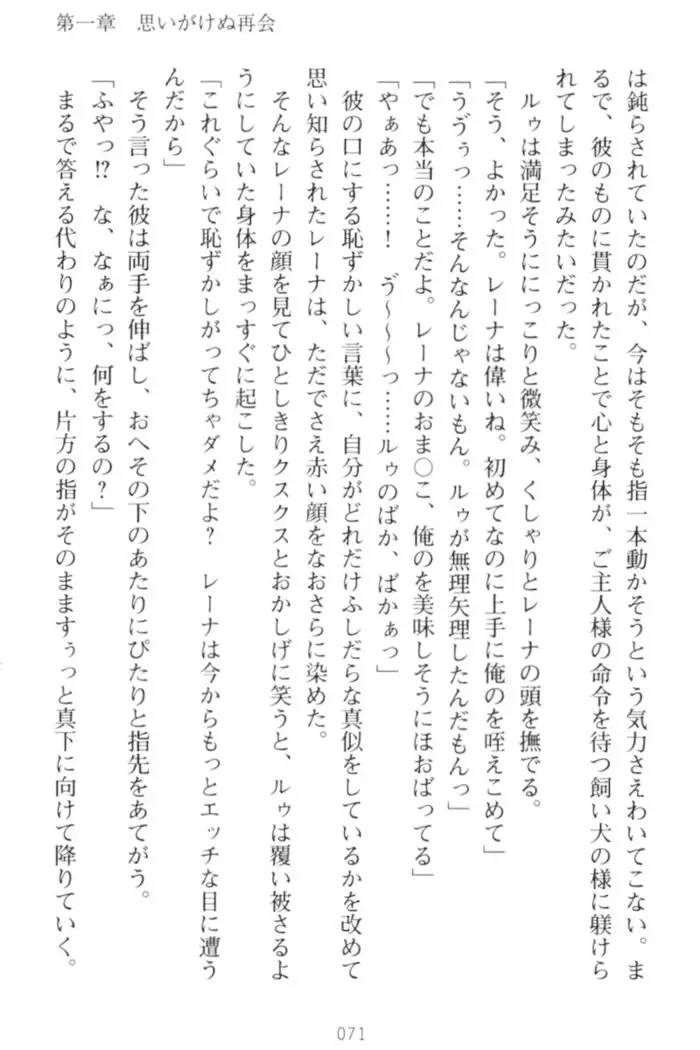 第一章　思いがけぬ再会
は鈍らされていたのだが、今はそもそも指一本動かそうという気力さえわいてこない。ま
るで、彼のものに貫かれたことで心と身体が、ご主人様の命令を待つ飼い犬の様に躾けら
れてしまったみたいだった。
　ルゥは満足そうににっこりと微笑み、くしゃりとレーナの頭を撫でる。
「そう、よかった。レーナは偉いね。初めてなのに上手に俺のを咥えこめて」
「うゔぅっ……そんなんじゃないもん。ルゥが無理矢理したんだもんっ」
「でも本当のことだよ。レーナのおま○こ、俺のを美味しそうにほおばってる」
「やぁあっ……！　ゔ～～～っ……ルゥのばか、ばかぁっ」
　彼の口にする恥ずかしい言葉に、自分がどれだけふしだらな真似をしているかを改めて
思い知らされたレーナは、ただでさえ赤い顔をなおさらに染めた。
　そんなレーナの顔を見てひとしきりクスクスとおかしげに笑うと、ルゥは覆い被さるよ
うにしていた身体をまっすぐに起こした。
「これぐらいで恥ずかしがってちゃダメだよ？　レーナは今からもっとエッチな目に遭う
んだから」
　そう言った彼は両手を伸ばし、おへその下のあたりにぴたりと指先をあてがう。
「ふやっ!?　な、なぁにっ、何をするの？」
　まるで答える代わりのように、片方の指がそのまますぅっと真下に向けて降りていく。
071